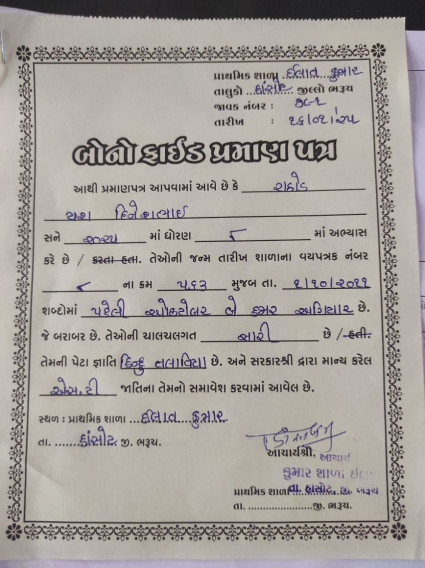 પ્રાથમિક શાળા ઈલાવ કુમાર
તાલુકો હાંસોટ જીલ્લો ભરૂચ
જાવક નંબર :
તારીખ : ૨૬/૦૧/૨૫
બોનોફાઈડ પ્રમાણ પત્ર
આથી પ્રમાણપત્ર આપવામાં આવે છે કે રાઠોડ
યશ દિનેશભાઈ
સને માં ધોરણ ૮ માં અભ્યાસ
કરે છે / કરતા હતા. તેઓની જન્મ તારીખ શાળાના વયપત્રક નંબર
૮ ના ક્રમ ૫૬૩ મુજબ તા. ૧/૧૦/૨૦૧૧
શબ્દોમાં પહેલી ઓક્ટોબર બે હજાર અગિયાર છે.
જે બરાબર છે. તેઓની ચાલચલગત સારી છે / હતી.
તેમની પેટા જ્ઞાતિ હિન્દુ તલાવિયા છે. અને સરકારશ્રી દ્વારા માન્ય કરેલ
એસ.ટી જાતિના તેમનો સમાવેશ કરવામાં આવેલ છે.
સ્થળ : પ્રાથમિક શાળા ઈલાવ કુમાર
તા. હાંસોટ જી. ભરૂચ.
આચાર્યશ્રી, આચાર્ય
કુમાર શાળા ઇલાવ
પ્રાથમિક શાળા તા. હાંસોટ, જી. ભરૂચ
તા. જી. ભરૂચ.